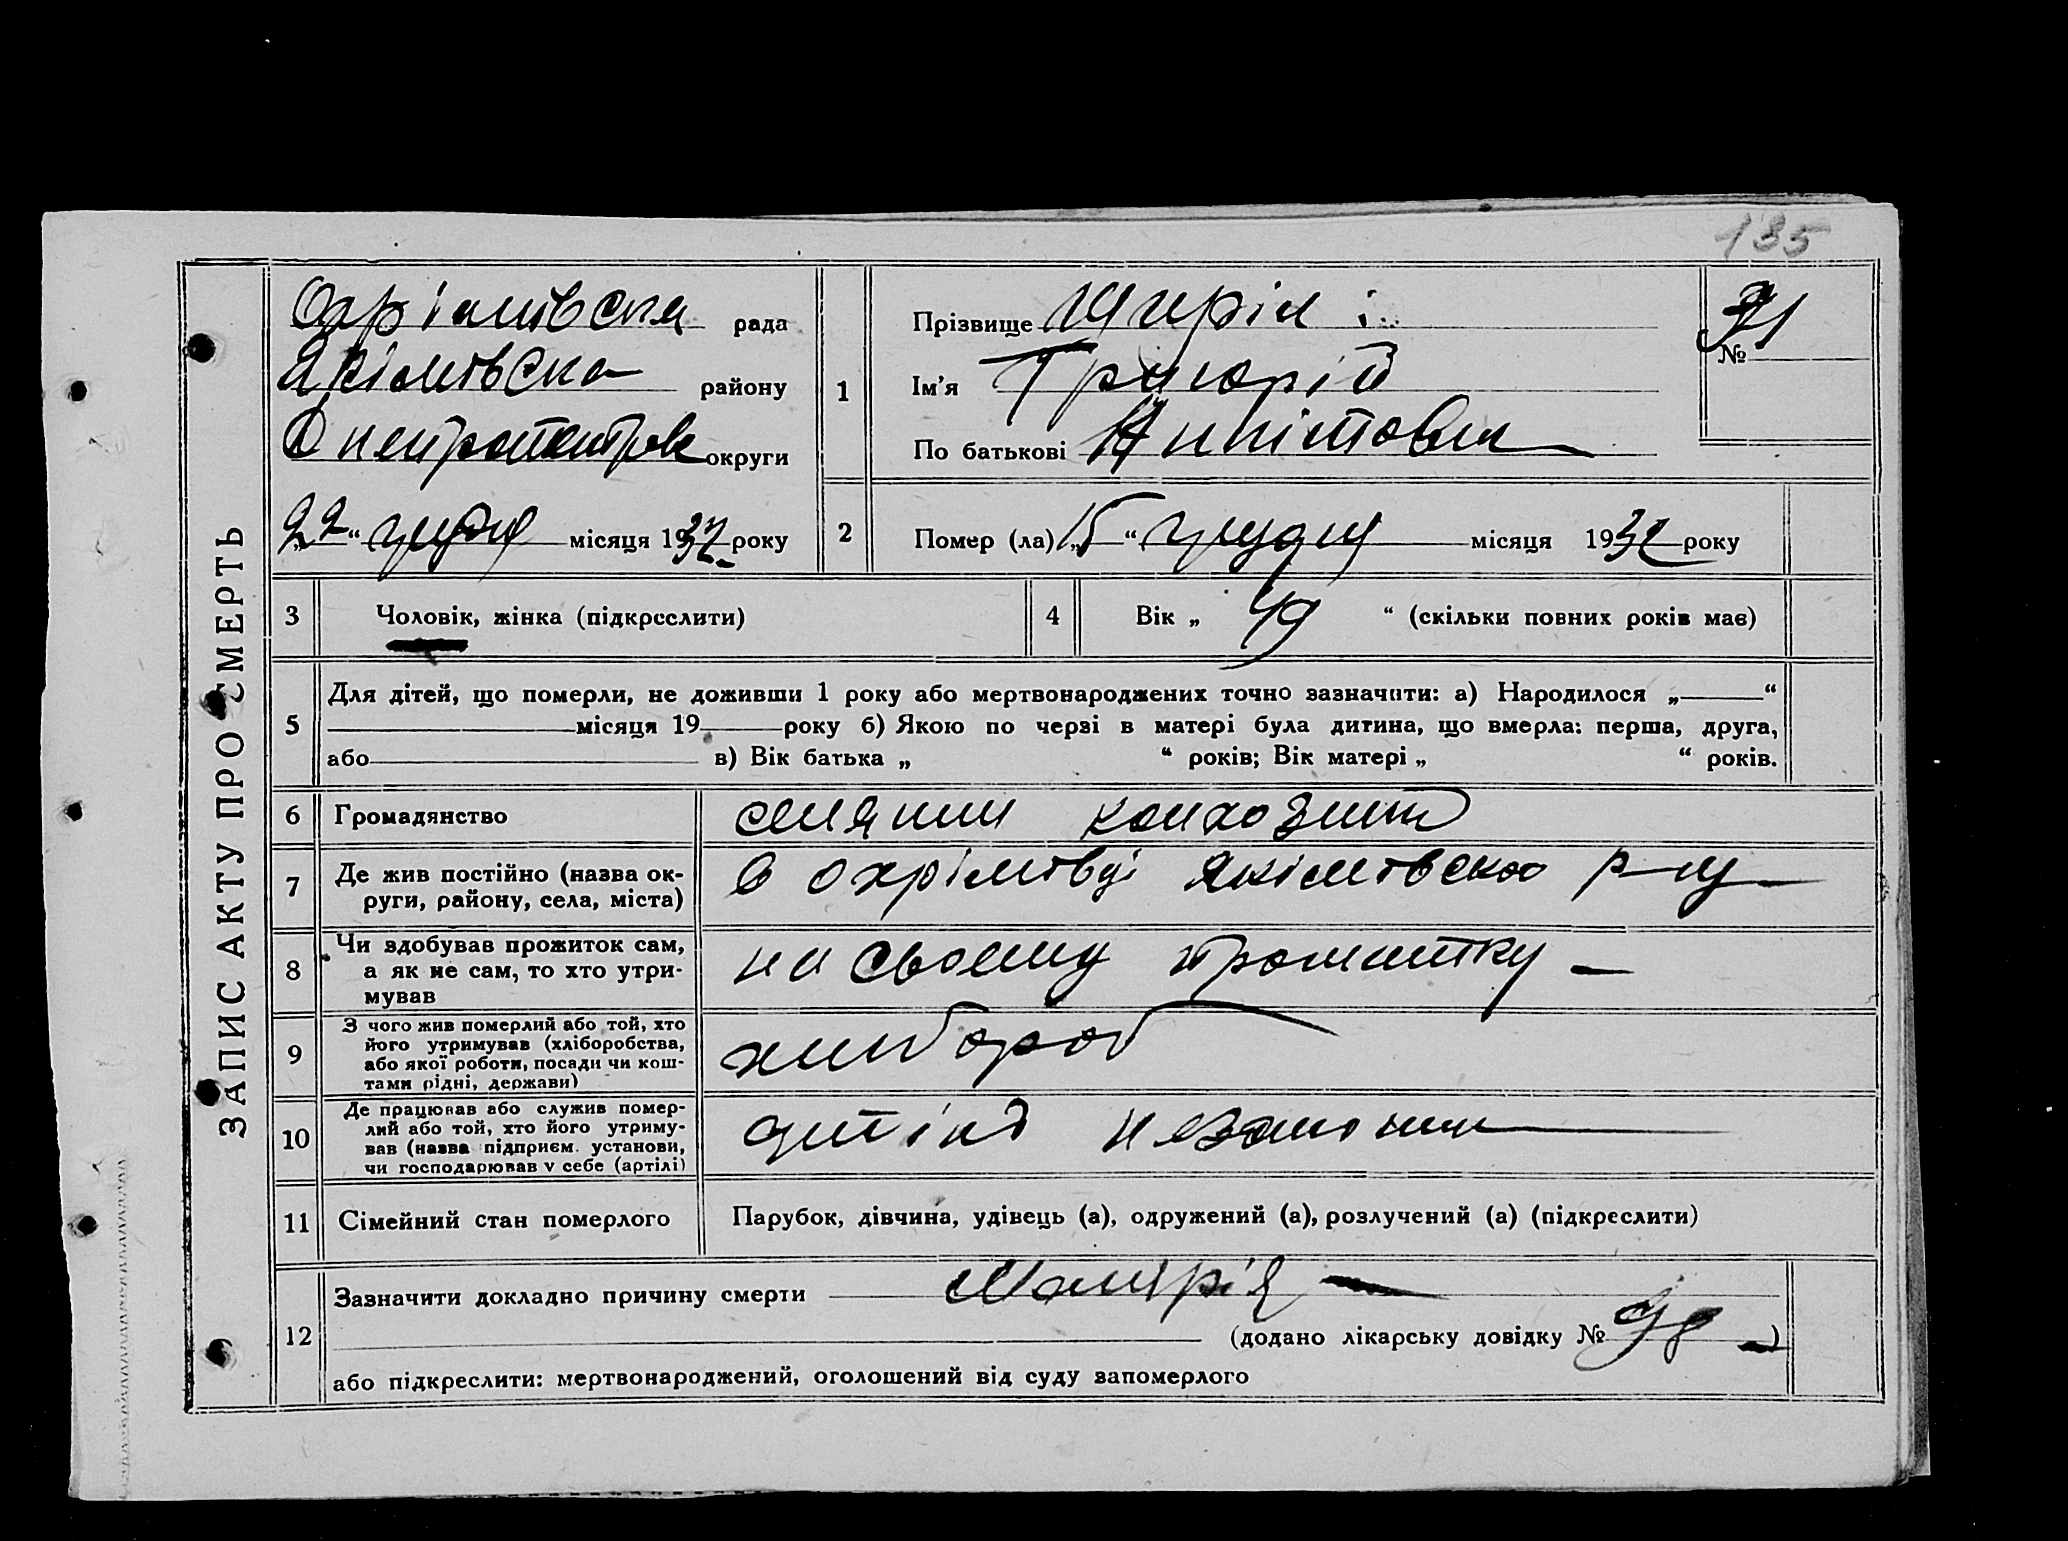 135
ЗАПИС АКТУ ПРО СМЕРТЬ
Охрімівська рада
Якімівська району
Днепропетров округи
„22“ грудня місяця 1932 року
1
Прізвище
Ім’я Григорій
По батькові
№ 31
2
Помер (ла) „15“ грудня місяця 1932 року
3 Чоловік, жінка (підкреслити)
4 Вік „49“ (скільки повних років має)
5
Для дітей, що померли, не доживши 1 року або мертвонароджених точно зазначити: а) Народилося „ “
місяця 19 року б) Якою по черзі в матері була дитина, що вмерла: перша, друга,
або в) Вік батька „ “ років; Вік матері „ “ років.
6 Громадянство селянин колхозник
7 Де жив постійно (назва ок-
руги, району, села, міста)
в Охрімівці Якімівсько р-ну
8 Чи здобував прожиток сам,
а як не сам, то хто утри-
мував
на своему прожитку
9 З чого жив померлий або той, хто
його утримував (хліборобства,
або якої роботи, посади чи кош-
тами рідні, держави)
хлибороб
10 Де працював або служив помер-
лий або той, хто його утриму-
вав (назва підприєм. установи,
чи господарював у себе (артілі)
артіль незаможник
11 Сімейний стан померлого Парубок, дівчина, удівець (а), одружений (а), розлучений (а) (підкреслити)
12
Зазначити докладно причину смерти Малярія
(додано лікарську довідку № 98)
або підкреслити: мертвонароджений, оголошений від суду запомерлого